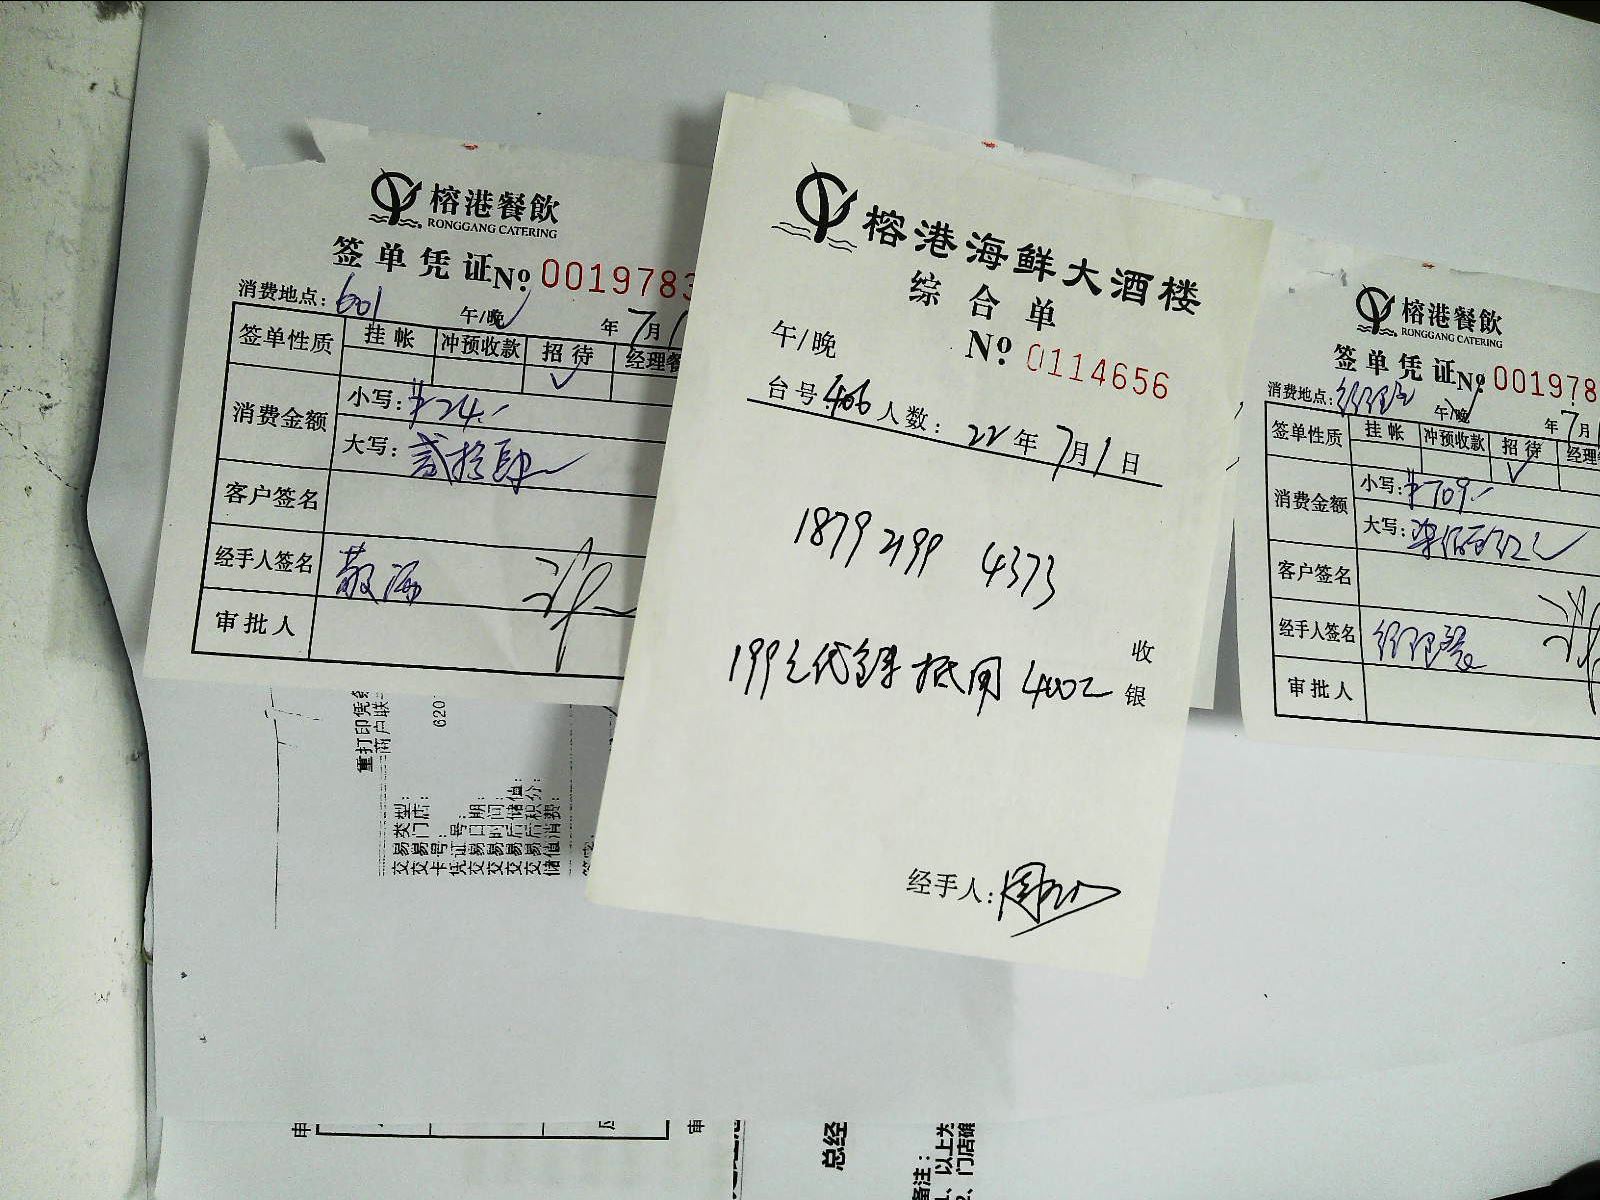 榕港餐飲
RONGGANG CATERING
签单凭证 No. 0019783
消费地点: 601 午/晚 年 7月1
签单性质 挂帐 冲预收款 招待 经理餐
✓
消费金额 小写: ¥24.-
大写: 贰拾肆
客户签名
经手人签名
审批人
榕港海鲜大酒楼
综合单
午/晚 No. 0114656
台号: 406 人数: 22年7月1日
1879 2199 4373
199元代金券抵用400元
收银
经手人:
榕港餐飲
RONGGANG CATERING
签单凭证 No. 001978
消费地点: 经理室 午/晚 年 7月
签单性质 挂帐 冲预收款 招待 经理
✓
消费金额 小写: ¥709.-
大写: 柒佰零玖元
客户签名
经手人签名
审批人
重打印凭
商户联
620
交易类型:
交易门店:
卡号:
凭证号:
交易日期:
交易时间:
交易后储值:
交易后积分:
储值消费:
申
审
总经
备注:
1、以上为
2、门店确